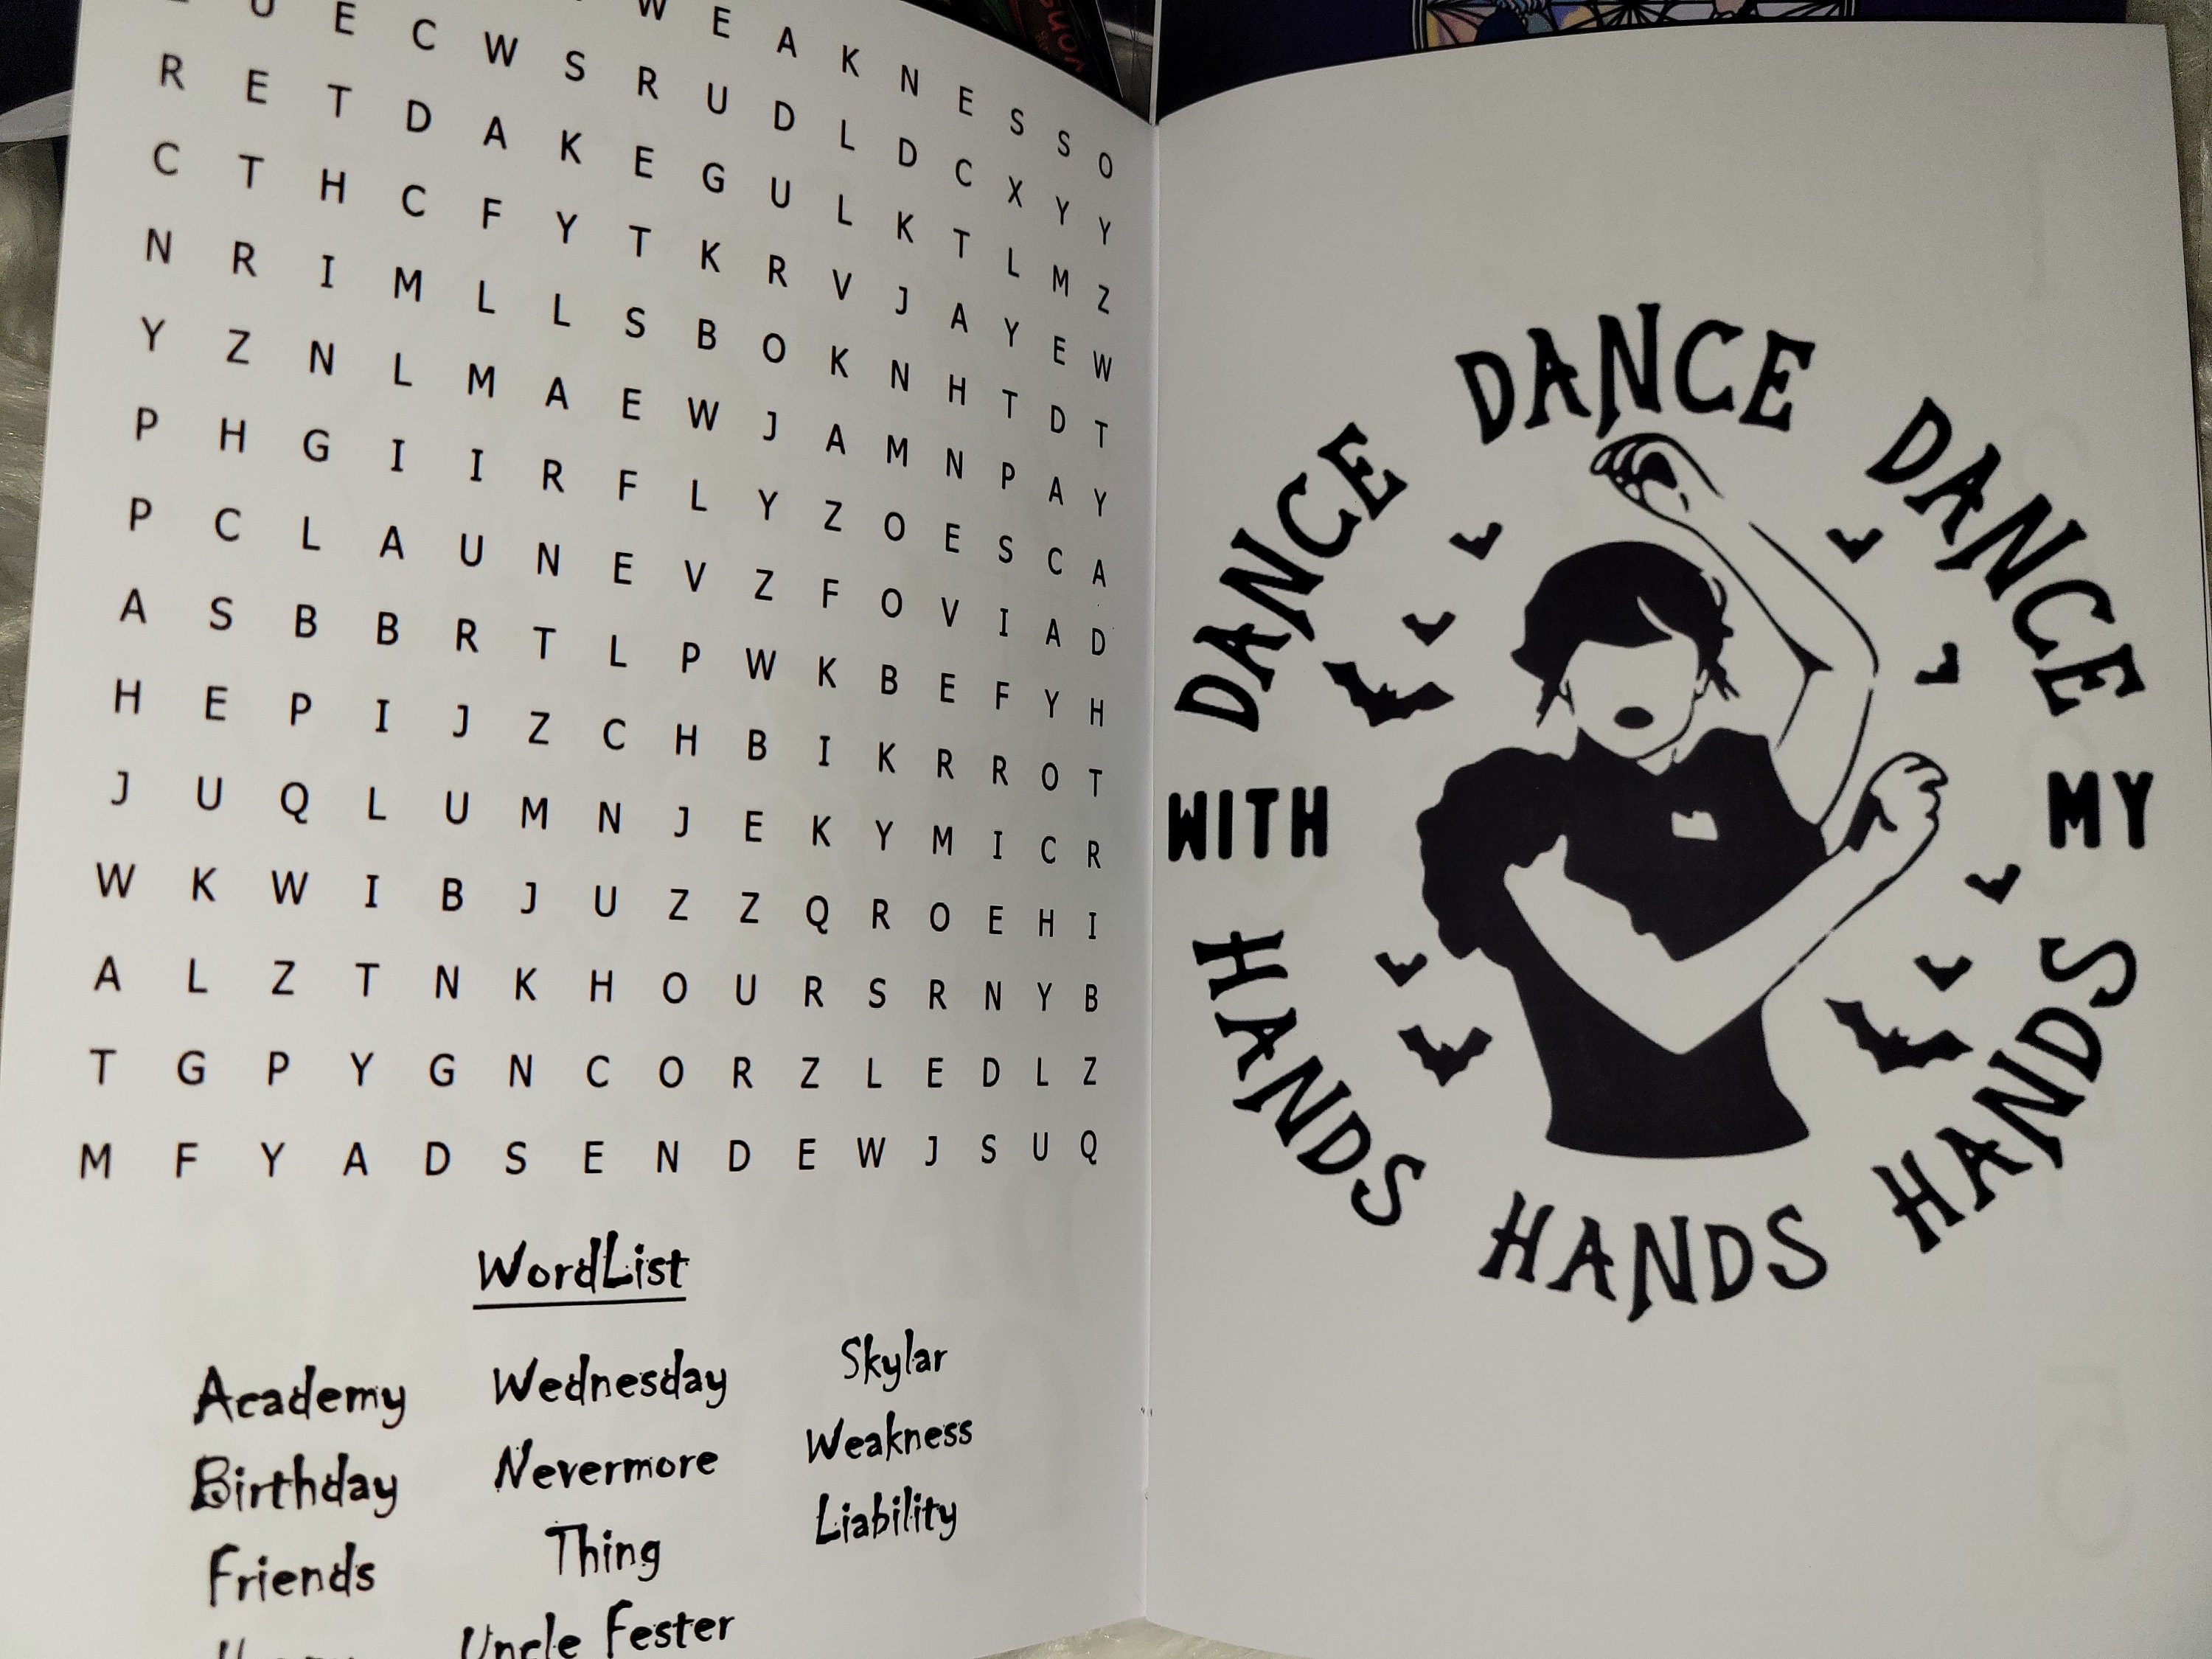 W E A K N E S S O
U E C W S R U D L D C X Y Y
R E T D A K E G U L K T L M Z
C T H C F Y T K R V J A Y E W
N R I M L L S B O K N H T D T
Y Z N L M A E W J A M N P A Y
P H G I I R F L Y Z O E S C A
P C L A U N E V Z F O V I A D
A S B B R T L P W K B E F Y H
H E P I J Z C H B I K R R O T
J U Q L U M N J E K Y M I C R
W K W I B J U Z Z Q R O E H I
A L Z T N K H O U R S R N Y B
T G P Y G N C O R Z L E D L Z
M F Y A D S E N D E W J S U Q
WordList
Academy
Birthday
Friends
Wednesday
Nevermore
Thing
Uncle Fester
Skylar
Weakness
Liability
DANCE DANCE DANCE
WITH MY
HANDS HANDS HANDS